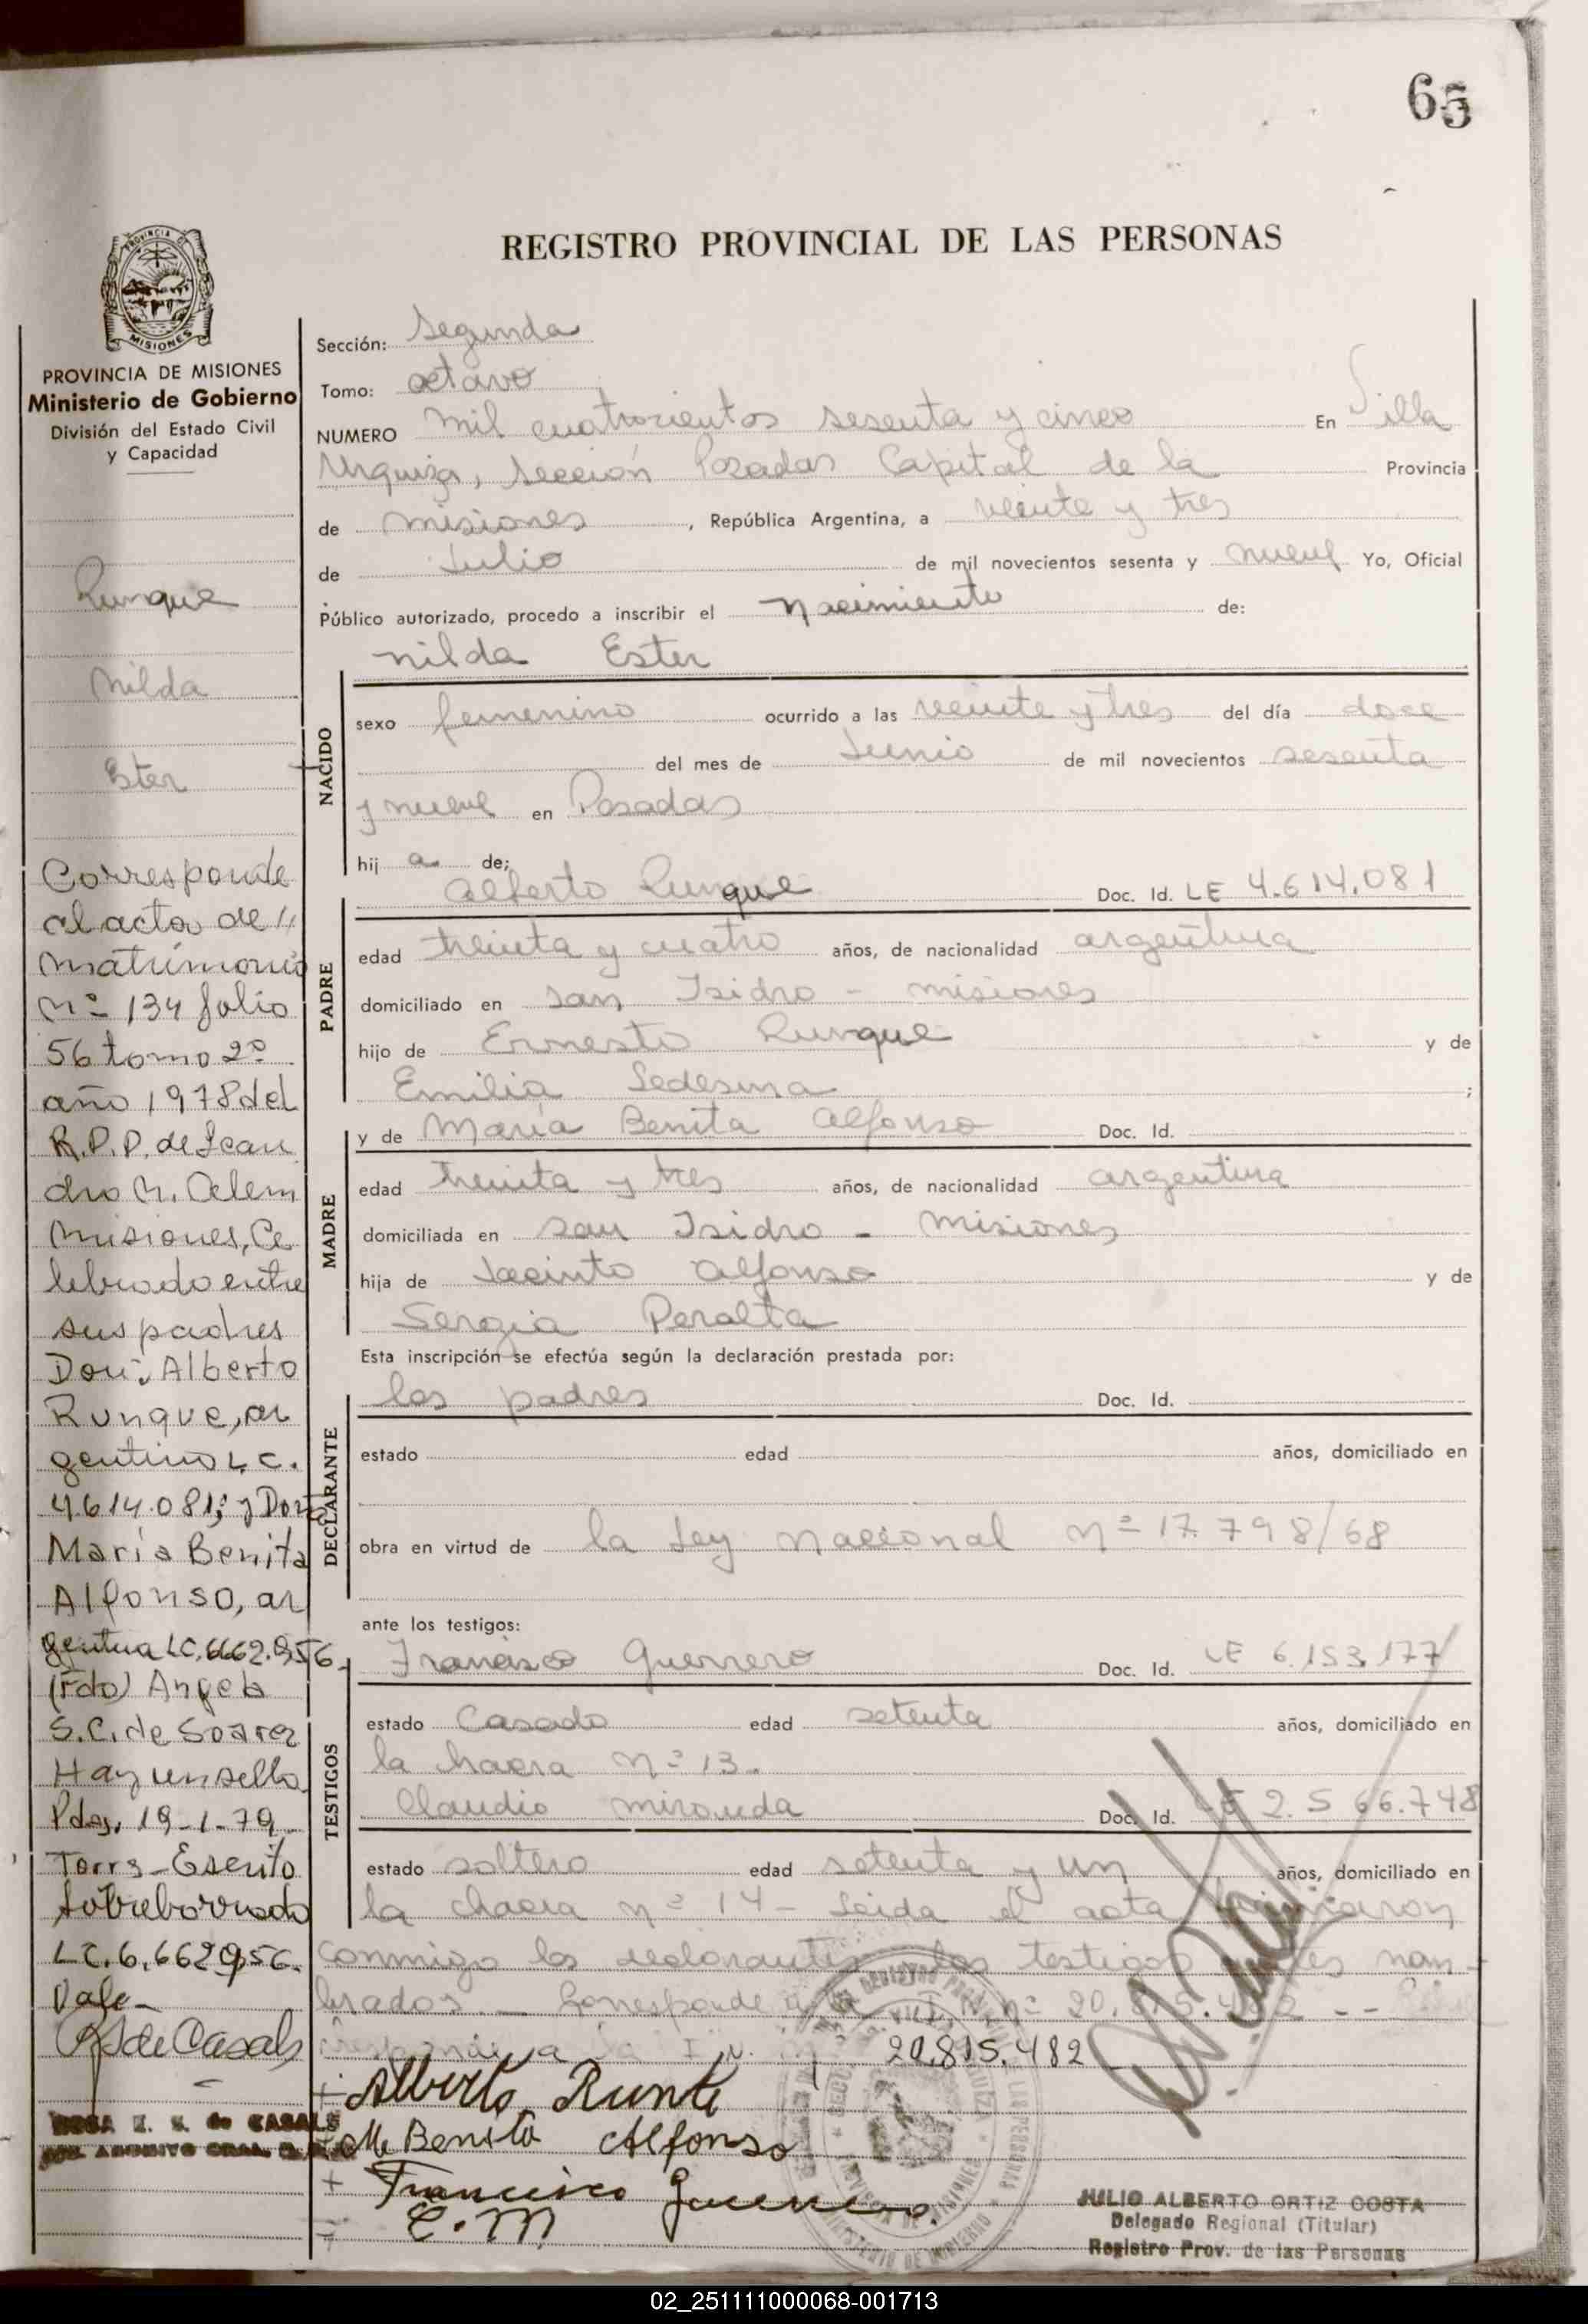 65
REGISTRO PROVINCIAL DE LAS PERSONAS
PROVINCIA DE MISIONES
MISIONES
PROVINCIA DE MISIONES
Ministerio de Gobierno
División del Estado Civil
y Capacidad
Runque
Nilda
Ester
Corresponde
al acta de
matrimonio
Nº 134 folio
56 tomo 2º
año 1978 del
R.P.P. de Lean
dro N. Alem
Misiones, Ce
lebrado entre
sus padres
Don: Alberto
Runque, ar
gentino L.C.
4.614.081; y Doña
María Benita
Alfonso, ar
gentina LC. 6.662.956.
(Fdo) Angela
S.C. de Soarez
Hay un sello
Pdas, 19-1-79.
Torrs - Escrito
sobreborrado
LC. 6.662.956.
Vale -
RS de Casals
de CASALS
Sección: Segunda
Tomo: octavo
NUMERO mil cuatrocientos sesenta y cinco En Villa
Urquiza, sección Posadas Capital de la Provincia
de Misiones, República Argentina, a veinte y tres
de Julio de mil novecientos sesenta y nueve Yo, Oficial
Público autorizado, procedo a inscribir el nacimiento de:
Nilda Ester
NACIDO
sexo femenino ocurrido a las veinte y tres del día doce
del mes de Junio de mil novecientos sesenta
y nueve en Posadas
hij a de;
Alberto Runque Doc. Id. LE 4.614.081
PADRE
edad treinta y cuatro años, de nacionalidad argentina
domiciliado en San Isidro - Misiones
hijo de Ernesto Runque y de
Emilia Ledesma ;
y de María Benita Alfonso Doc. Id.
MADRE
edad treinta y tres años, de nacionalidad argentina
domiciliada en San Isidro - Misiones
hija de Jacinto Alfonso y de
Sergia Peralta
Esta inscripción se efectúa según la declaración prestada por:
los padres Doc. Id.
DECLARANTE
estado edad años, domiciliado en
obra en virtud de la Ley Nacional Nº 17.798/68
ante los testigos:
Francisco Guerrero Doc. Id. LE 6.153.177
TESTIGOS
estado Casado edad setenta años, domiciliado en
la chacra Nº 13.
Claudio Miranda Doc. Id. LE 2.566.748
estado soltero edad setenta y un años, domiciliado en
la chacra Nº 14 - Leida el acta firmaron
conmigo los declarantes los testigos antes nom-
brados. - Corresponde a la I.N. nº 20.815.482 --
20.815.482
Alberto Runke
M Benita Alfonso
Francisco Guerrero.
C. M.
JULIO ALBERTO ORTIZ COSTA
Delegado Regional (Titular)
Registro Prov. de las Personas
02_251111000068-001713